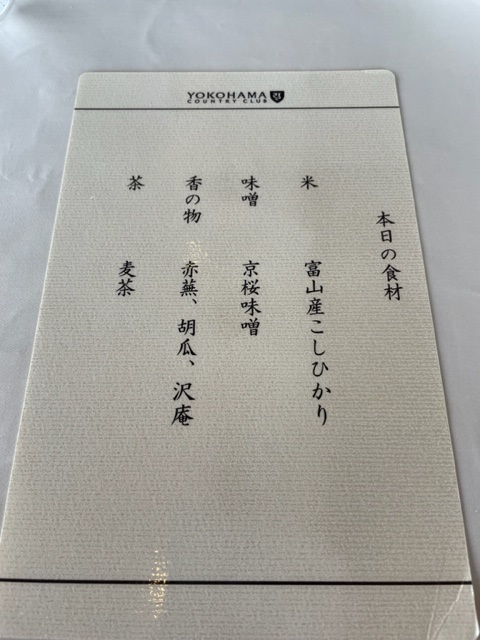 YOKOHAMA
COUNTRY CLUB
本日の食材
米 富山産こしひかり
味噌 京桜味噌
香の物 赤蕪、胡瓜、沢庵
茶 麦茶